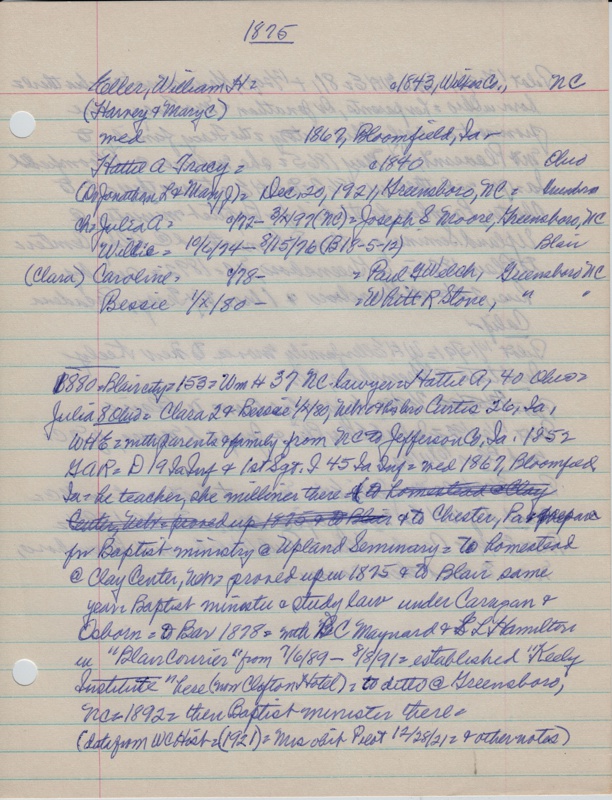 1875
Eller, William H = c1843, Wilkes Co., NC
(Harvey & Mary C)
med 1867, Bloomfield, Ia =
Hattie A Tracy = c1840 Ohio
(Dr Jonathan L & Mary J) = Dec. 20, 1921, Greensboro, NC =
Ch = Julia A = c/72 - (NC) = Joseph S Moore, Greensboro, NC
Willie = 10/6/74 - 8/15/76 (B18-5-12) Blair
(Clara) Caroline = c/78 - = Paul G Welch, Greensboro NC
Bessie 1/x/80 - = Whitt R Stone, " "
1880 = Blair city = 153 = Wm H 37 NC = lawyer = Hattie A, 40 Ohio =
Julia 8 Ohio = Clara 2 & Bessie 1/x/80, Nebr = Curtis 26, Ia,
WHE = with parents & family from NC to Jefferson Co, Ia, 1852
GAR = D 19 Ia Inf & 1st Sgt. I 45 Ia Inf = med 1867, Bloomfield,
Ia = he teacher, she milliner there = & to homestead @ Clay
Center, Nebr = proved up 1875 & to Blair & to Chester, Pa & prepare
for Baptist ministry @ Upland Seminary = to homestead
@ Clay Center, Nebr = proved up in 1875 & to Blair same
year = Baptist minister & study law under Caragan &
Osborn = to Bar 1878 = with BC Maynard & L Hamilton
in "Blair Courier" from 7/6/89 - 8/8/91 = established "Keely
Institute" here (now Clifton Hotel) = to ditto @ Greensboro,
NC = 1892 = then Baptist minister there =
(data from WC Hist = (1921) = Mrs obit Pilot 12/28/21 = & other notes)